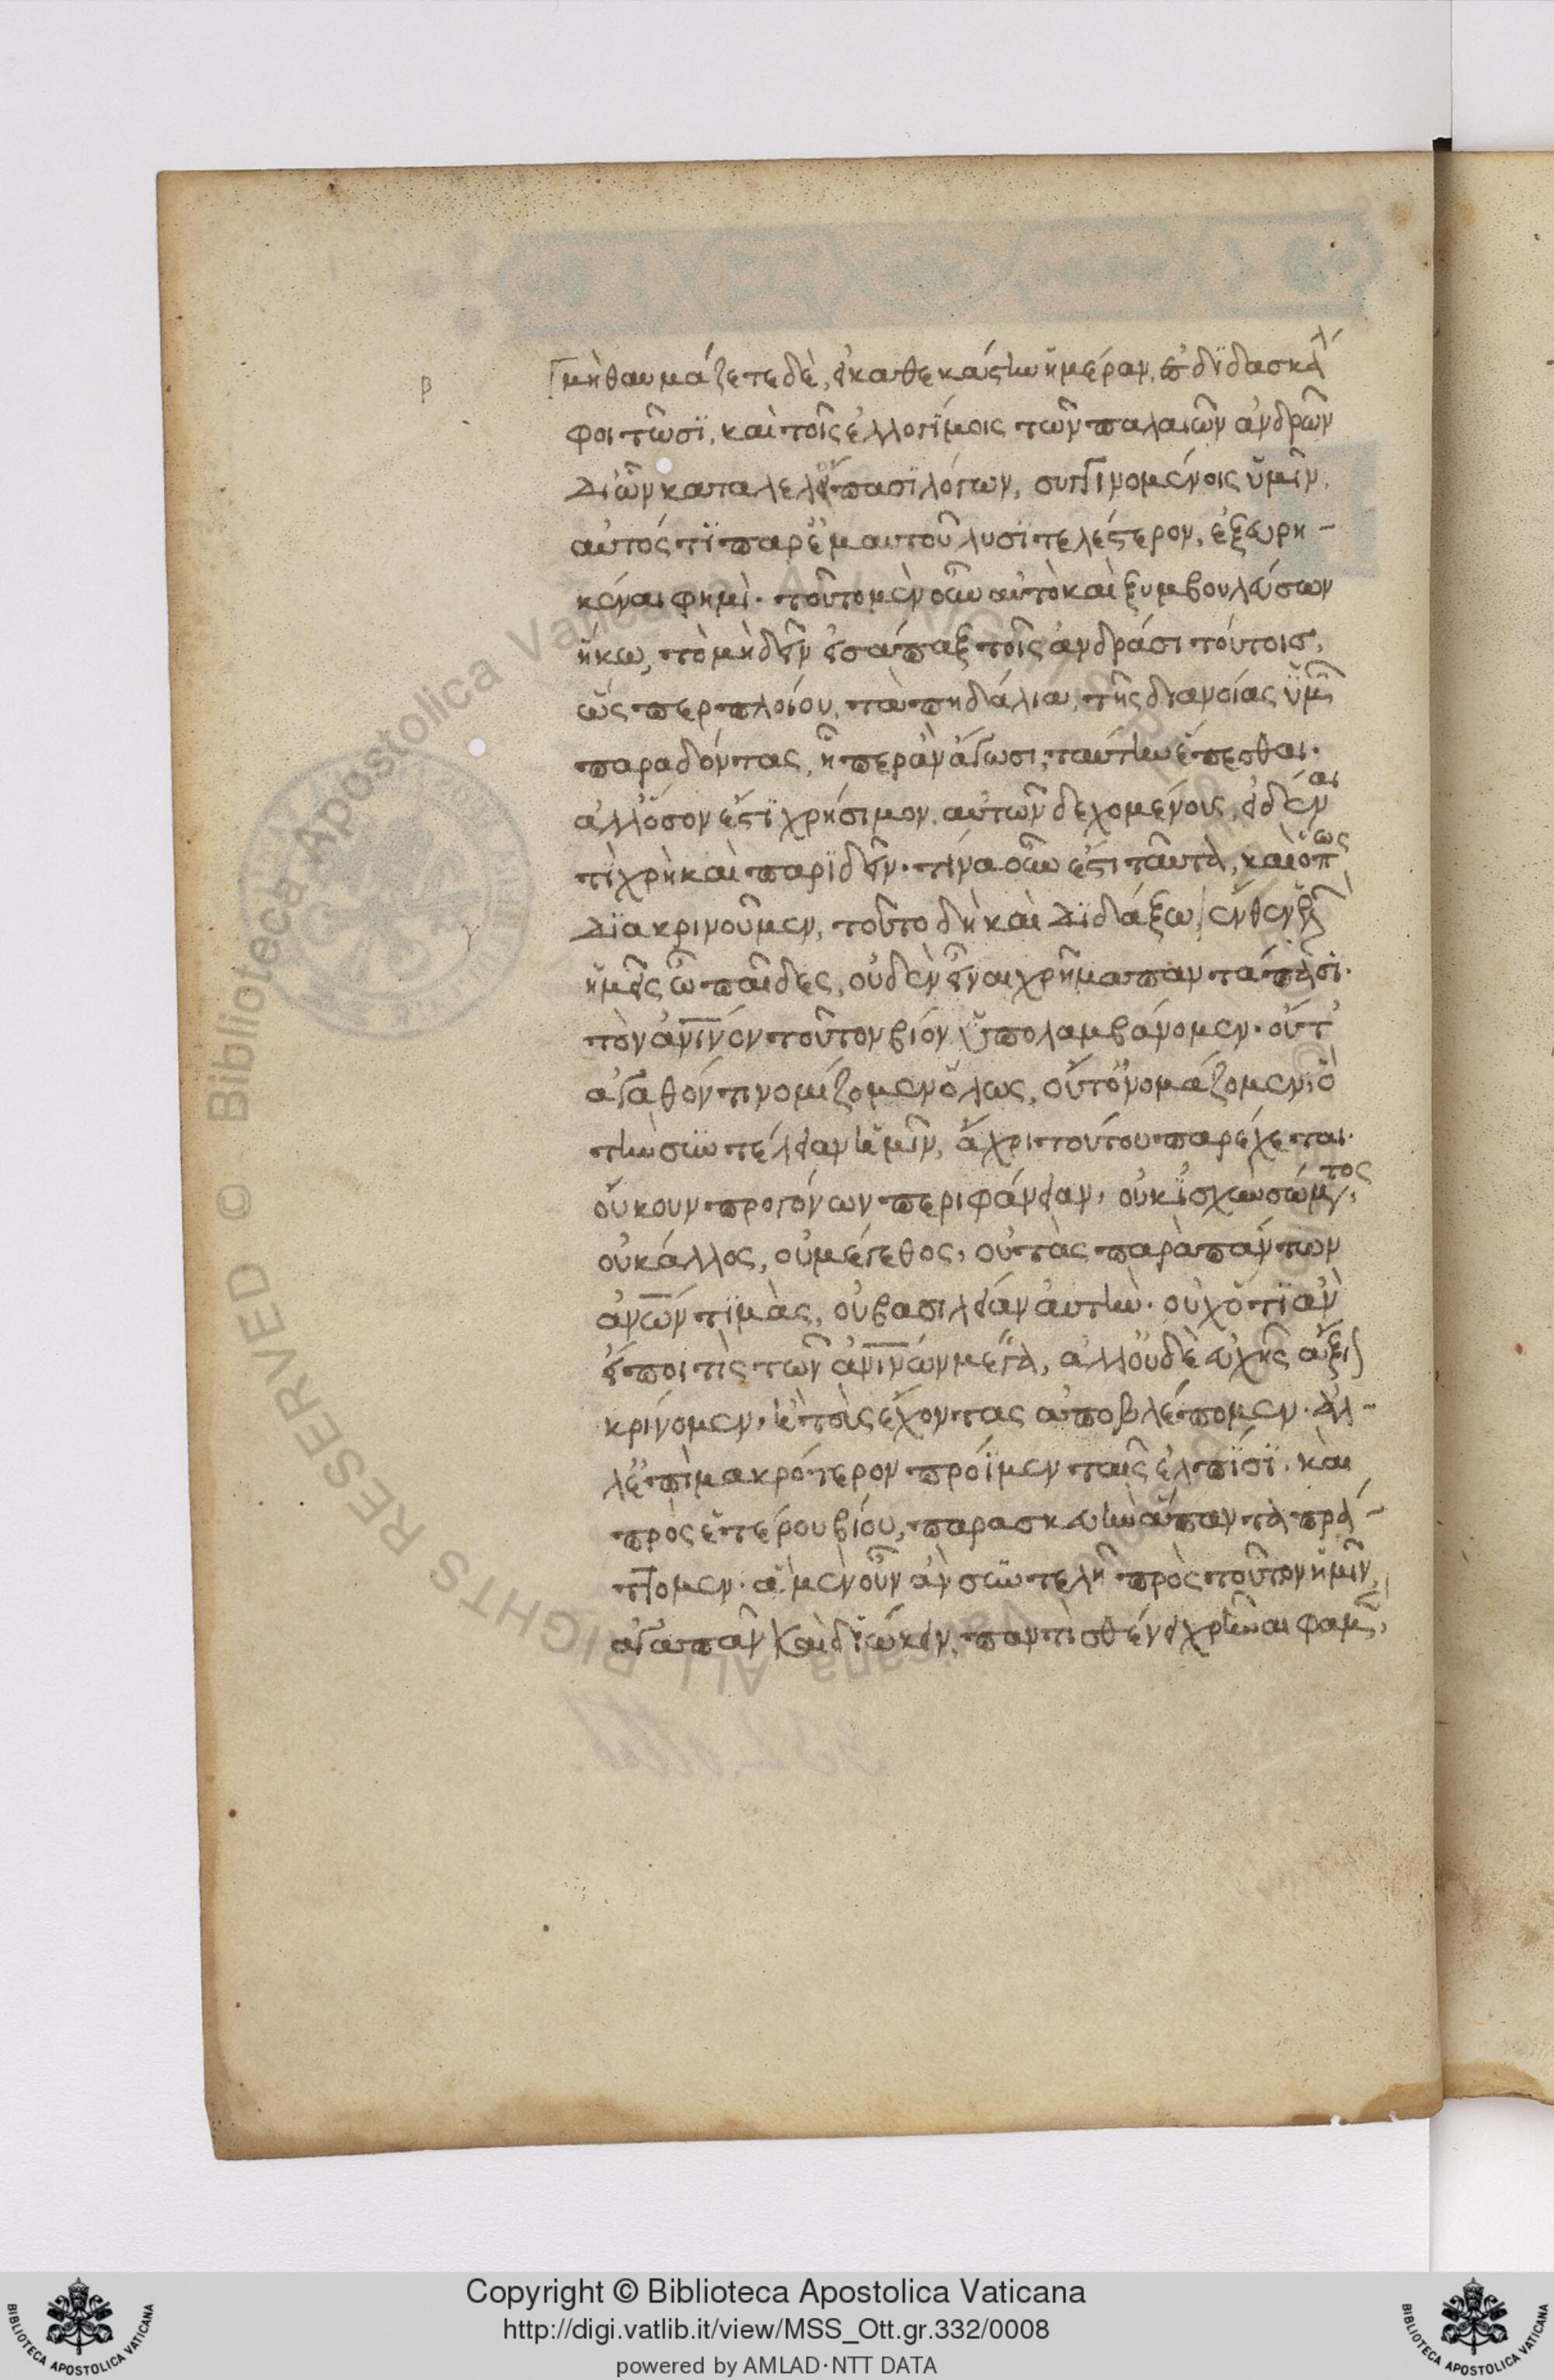 β
μὴ θαυμάζετε δὲ, εἰ καθεκάστην ἡμέραν, εἰς διδασκάλ
φοιτῶσϊ, καὶ τοῖς ἐλλογΐμοις τῶν παλαιῶν ἀνδρῶν
δι ὧν καταλελοίπασϊ λόγων, συγγινομένοις ὑμῖν,
αὐτός τϊ παρ ἐμαυτοῦ λυσϊτελέστερον, ἐξευρη-
κέναι φημὶ. τοῦτο μὲν οὖν αὐτὸ καὶ ξυμβουλεύσων
ἥκω, τὸ μὴ δεῖν εἰσάπαξ τοῖς ἀνδράσι τούτοις,
ὥσπερ πλοίου, τὰ πηδάλια, τῆς διανοίας ὑμῶν
παραδόντας, ᾗπερ ἂν ἄγωσι, ταύτην ἕπεσθαι.
ἀλλ ὅσον ἐστϊ χρήσιμον, αὐτῶν δεχομένους, εἰδέναι
τὶ χρὴ καὶ παρϊδεῖν. τίνα οὖν ἐστι ταῦτα, καὶ ὅπως
δϊακρινοῦμεν, τοῦτο δὴ καὶ δϊδάξω, ἔνθεν ἑλ
γ
ἡμεῖς ὦ παῖδες, οὐδὲν εἶναι χρῆμα πανταπασϊ.
τὸν ἀνινον τοῦτον βίον ὑπολαμβάνομεν. οὔτ
ἀγαθόν τι νομίζομεν ὅλως, οὔτ ὀνομάζομεν, ὃ
τὴν συντέλειαν ἡμῖν, ἄχρι τούτου παρέχεται.
οὔκουν προγόνων περιφάνειαν, οὐκ ἰσχὺν σώματος,
οὐ κάλλος, οὐ μέγεθος, οὐ τὰς παρὰ πάντων
ἀνων τϊμὰς, οὐ βασιλείαν αὐτὴν. οὐχ ὅ τϊ ἂν
εἴποι τὶς τῶν ἀνινων μέγα, ἀλλ οὐδὲ εὐχῆς ἄξιον
κρίνομεν, ἢ τοὺς ἔχοντας ἀποβλέπομεν. ἀλ-
λ ἐπὶ μακρότερον πρόϊμεν ταῖς ἐλπϊσϊ. καὶ
πρὸς ἑτέρου βίου, παρασκευὴν ἅπαντα πρά-
ττομεν. ἃ μὲν οὖν ἂν συντελῇ πρὸς τοῦτον ἡμῖν,
ἀγαπᾶν καὶ διώκειν, παντὶ σθένει χρῆναι φαμεν,
Copyright © Biblioteca Apostolica Vaticana
http://digi.vatlib.it/view/MSS_Ott.gr.332/0008
powered by AMLAD·NTT DATA